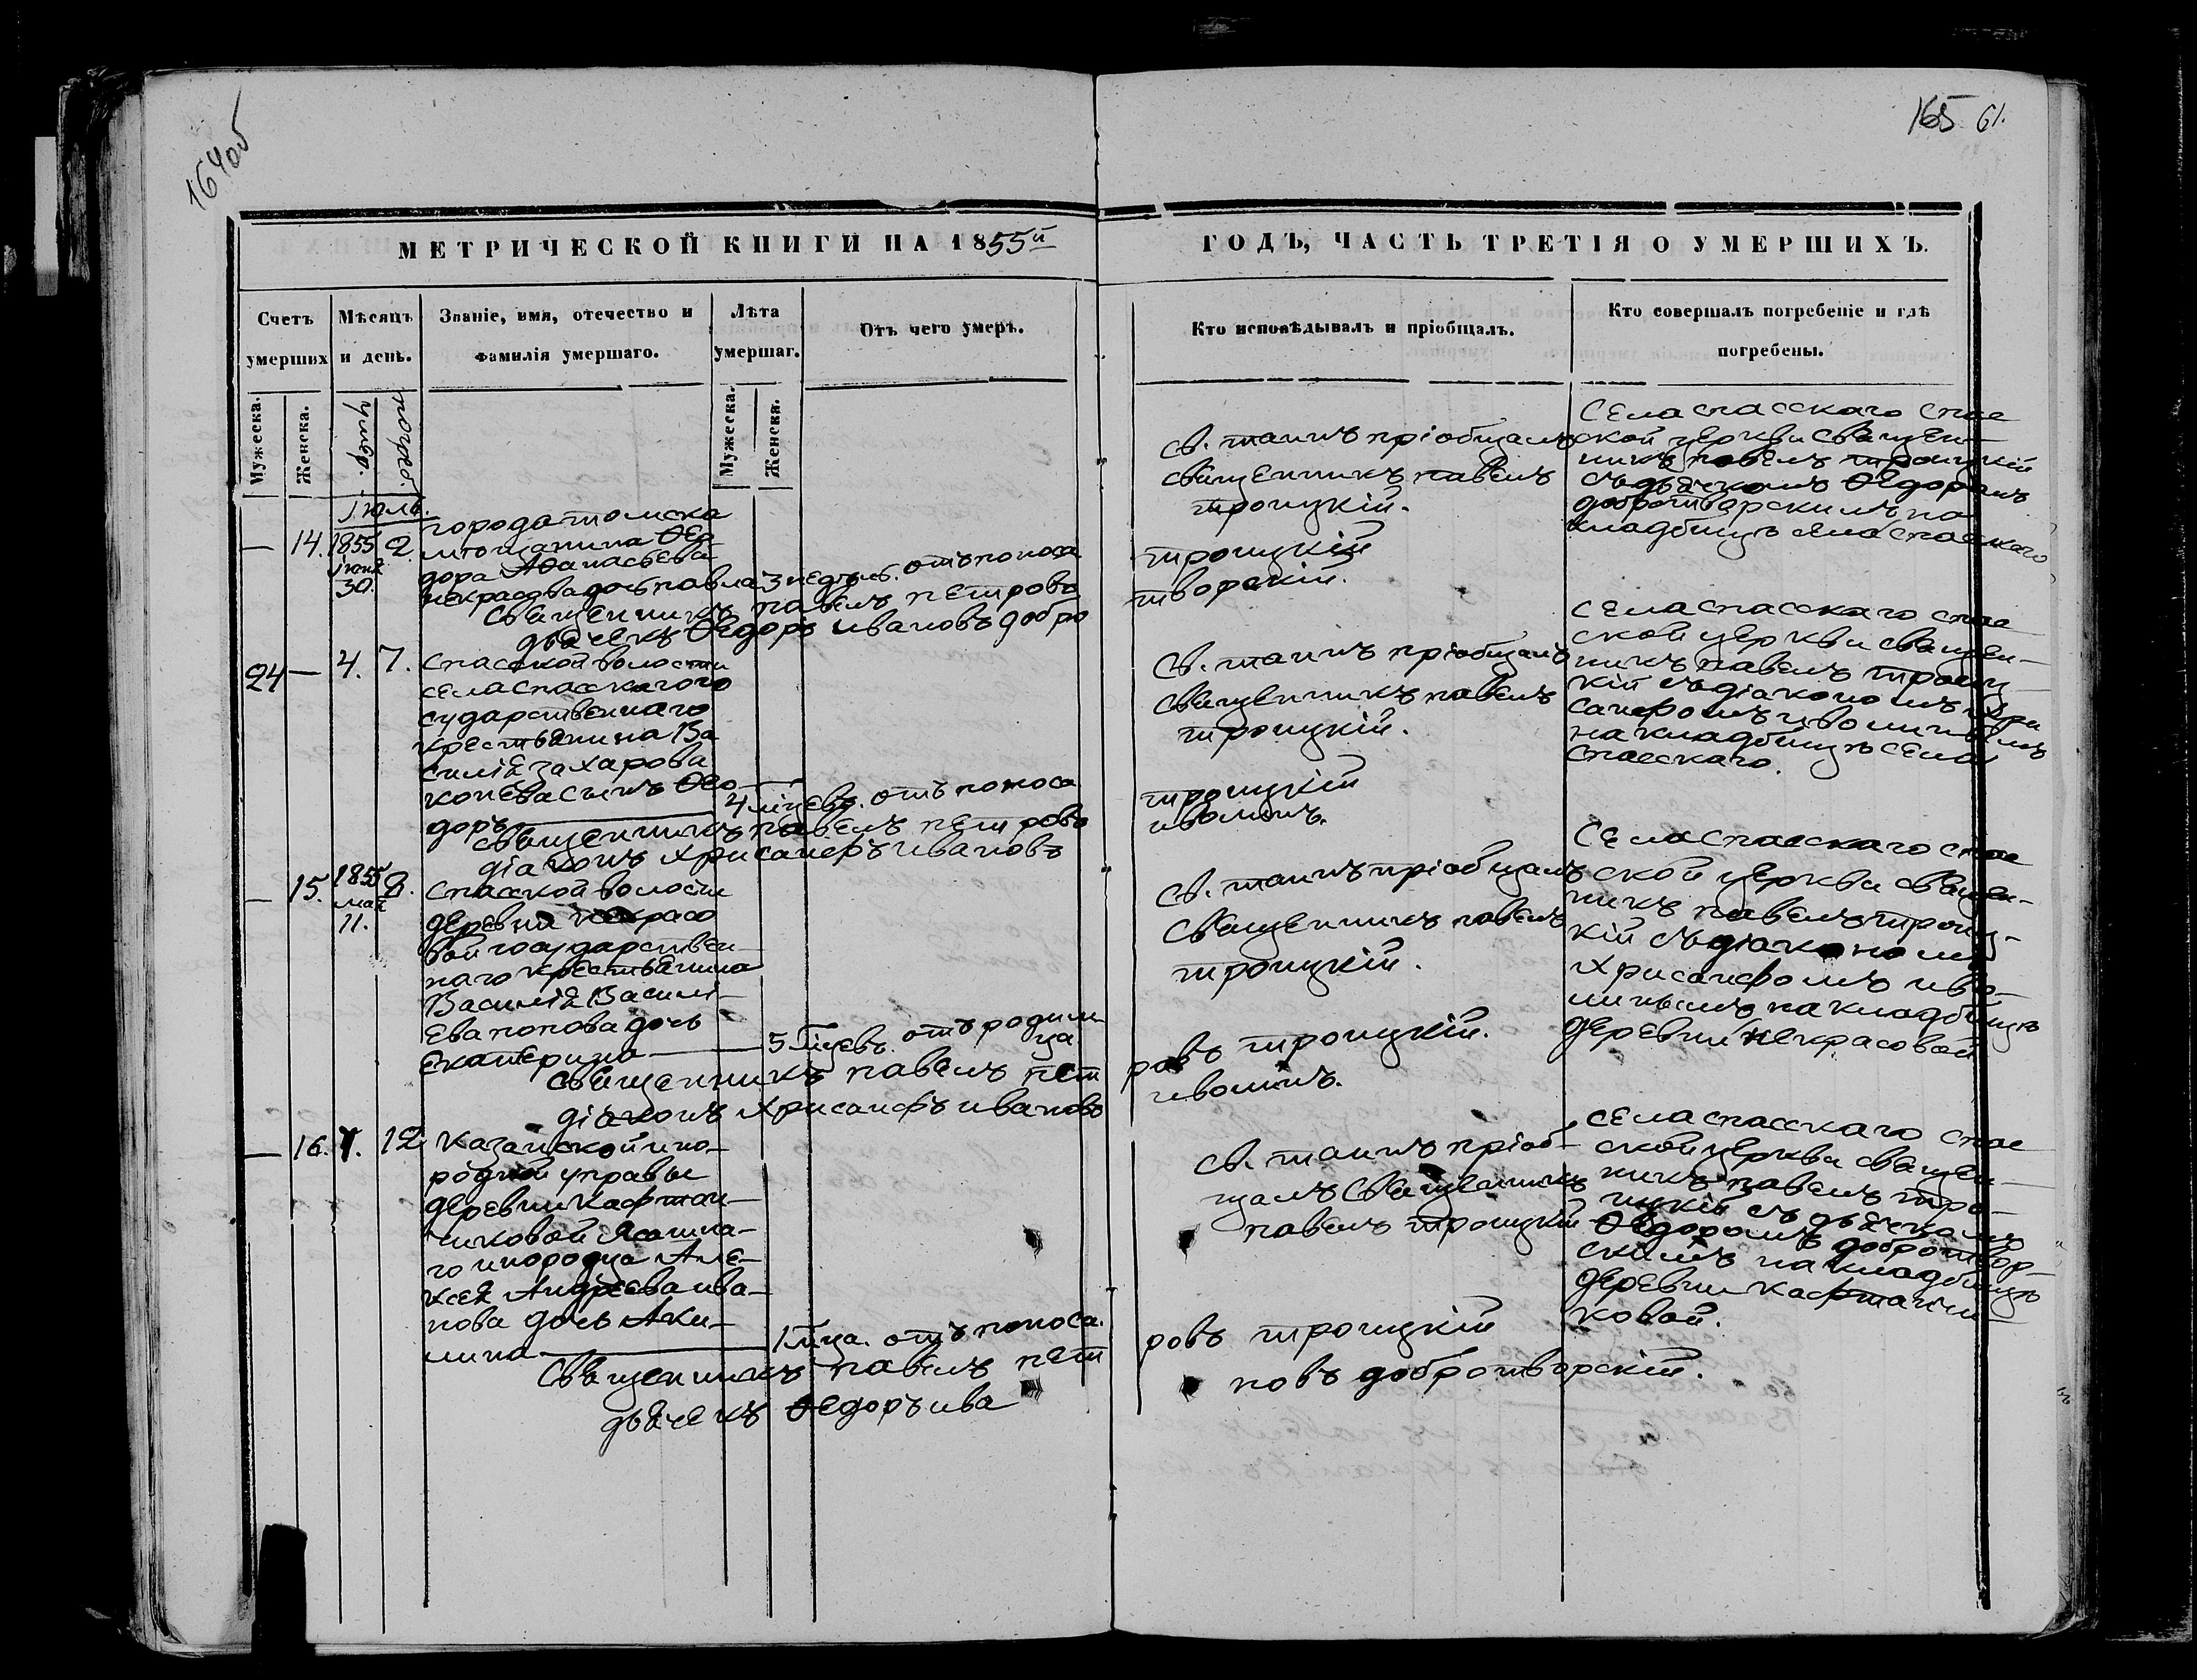 164об
165 61.
МЕТРИЧЕСКОЙ КНИГИ НА 1855й
ГОДЪ, ЧАСТЬ ТРЕТІЯ О УМЕРШИХЪ.
Счетъ умерших
Мѣсяцъ и день.
Званіе, имя, отечество и фамилія умершаго.
Лѣта умершаг.
Отъ чего умеръ.
Кто исповѣдывалъ и пріобщалъ.
Кто совершалъ погребеніе и гдѣ погребены.
Мужеска.
Женска.
умер.
погреб.
Мужеска.
Женскя.
Іюль.
— 14. 1855 іюня 30. 2.
города томска
мѣщанина Ѳео
дора Аѳанасьева
некрасова дочь павла 3 недѣль. отъ поноса
св. таинъ пріобщалъ
священникъ павелъ
троицкій.
села спасскаго спас
ской церкви священ
никъ павелъ троицкій
съ дьячкомъ Ѳедоромъ
добротворскимъ на
кладбищѣ села спасскаго
священникъ павелъ петровъ троицкій
дьячекъ Ѳедоръ ивановъ добро творскій.
24 — 4. 7.
спасской волости
села спасскаго го
сударственнаго
крестьянина Ва
силія захарова
конева сынъ Ѳео
доръ — 4 мцевъ. отъ поноса
св. таинъ пріобщалъ
священникъ павелъ
троицкій.
села спасскаго спас
ской церкви священ—
никъ павелъ троиц—
кій съ діакономъ Хри
санфомъ иволинымъ
на кладбищѣ села
спасскаго.
священникъ павелъ петровъ троицкій
діаконъ Хрисанфъ ивановъ иволинъ.
— 15. 1855 мая 11. 8.
спасской волости
деревни некрасо
вой государствен—
наго крестьянина
Василія Василі—
ева попова дочь
екатерина — 5 мцевъ. отъ родим
ца.
св. таинъ пріобщалъ
священникъ павелъ
троицкій.
села спасскаго спас
ской церкви священ—
никъ павелъ троиц—
кій съ діакономъ
Хрисанфомъ иво—
линымъ на кладбищѣ
деревни некрасовой
священникъ павелъ пет ровъ троицкій.
діаконъ Хрисанфъ ивановъ иволинъ.
— 16. 7. 12
Казанской ино—
родной управы
деревни Кафтан—
чиковой Ясашна—
го инородца Але—
ксея Андреева ива—
нова дочь Аки—
лина — 1 мца. отъ поноса.
св. таинъ пріоб—
щалъ священникъ
павелъ троицкій
села спасскаго спас
ской церкви священ—
никъ павелъ тро—
ицкій съ дьячкомъ
Ѳедоромъ добротвор—
скимъ на кладбищѣ
деревни Кафтанчи
ковой.
Священникъ павелъ пет ровъ троицкій
дьячекъ Ѳедоръ ива новъ добротворскій.